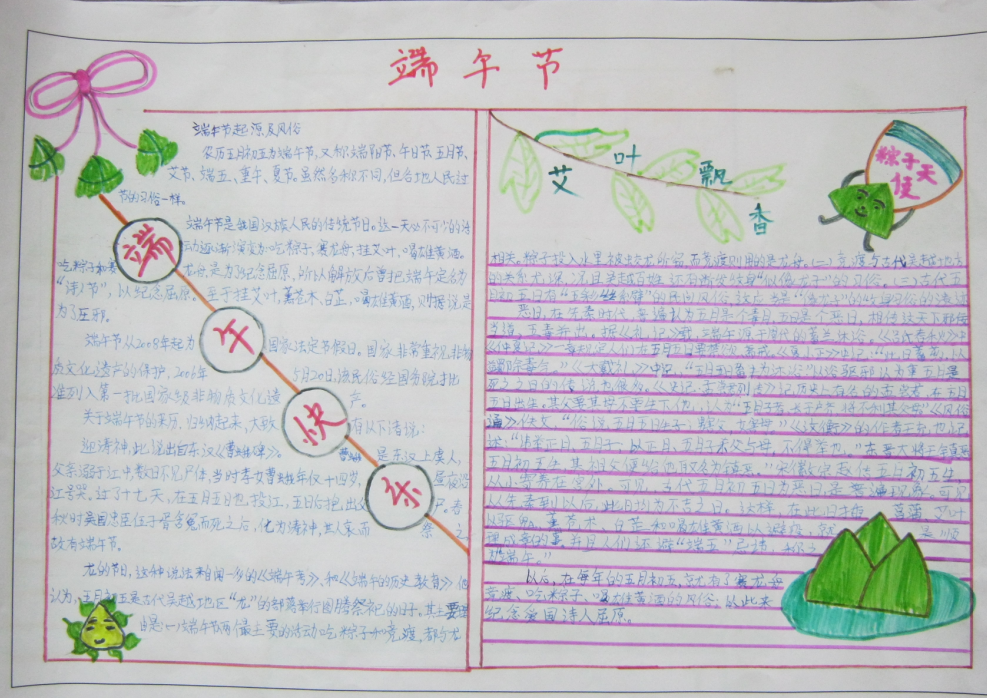 端午节
端午节起源及风俗
农历五月初五为端午节,又称端阳节、午日节、五月节、
艾节、端五、重午、夏节。虽然名称不同,但各地人民过
节的习俗一样。
端午节是我国汉族人民的传统节日。这一天必不可少的活
动逐渐演变为吃粽子,赛龙舟,挂艾叶,喝雄黄酒。
吃粽子和赛龙舟是为纪念屈原,所以解放后曾把端午定名为
“诗人节”,以纪念屈原。至于挂艾叶,薰苍术、白芷,喝雄黄酒,则据说是
为了压邪。
端午节从2008年起为国家法定节假日。国家非常重视非物
质文化遗产的保护,2006年5月20日,该民俗经国务院批
准列入第一批国家级非物质文化遗产。
关于端午节的来历,归纳起来,大致有以下诸说:
迎涛神,此说出自东汉《曹娥碑》。曹娥是东汉上虞人,
父亲溺于江中,数日不见尸体,当时孝女曹娥年仅十四岁,昼夜沿
江号哭。过了十七天,在五月五日也投江,五日后抱出父尸。春
秋时吴国忠臣伍子胥含冤而死之后,化为涛神,世人哀而祭之,
故有端午节。
龙的节日,这种说法来自闻一多的《端午考》和《端午的历史教育》他
认为,五月初五是古代吴越地区“龙”的部落举行图腾祭祀的日子,其主要理
由是:(一)端午节两个最主要的活动吃粽子和竞渡,都与龙
端
午
快
乐
艾
叶
飘
香
粽子天
佳
相关。粽子投入水里常被蛟龙所窃,而竞渡则用的是龙舟。(二)竞渡与古代吴越地方
的关系尤深,况且吴越百姓还有断发纹身“以像龙子”的习俗。(三)古代五
月初五日有
恶日,在先秦时代,普遍认为五月是个毒月,五日是个恶日,相传这天下邪佞
当道,五毒并出。
五日出生,其父要其母不要生下他,认为“五月子者,长于户齐,将不利其父母”《风俗
通》佚文,“俗说五月五日生子,男害父,女害母”《论衡》的作者王充也记
述:“讳举正月、五月子;以正月、五月子杀父与母,不得举也。”东晋大将王镇恶
五月初五生,其祖父便给他取名为“镇恶”。宋徽宗赵佶五月初五生,
从小寄养在宫外。可见,古代五月初五日为恶日,是普遍现象。可见
从先秦到以后,此日均为不吉之日。这样,在此日插菖蒲、艾叶
以驱鬼,薰苍术、白芷和喝雄黄酒以避疫,就是顺
理成章的事。并且人们还避“端五”忌讳,称之
为“端午”。
以后,在每年的五月初五,就有了赛龙舟
竞渡、吃粽子、喝雄黄酒的风俗,以此来
纪念爱国诗人屈原。